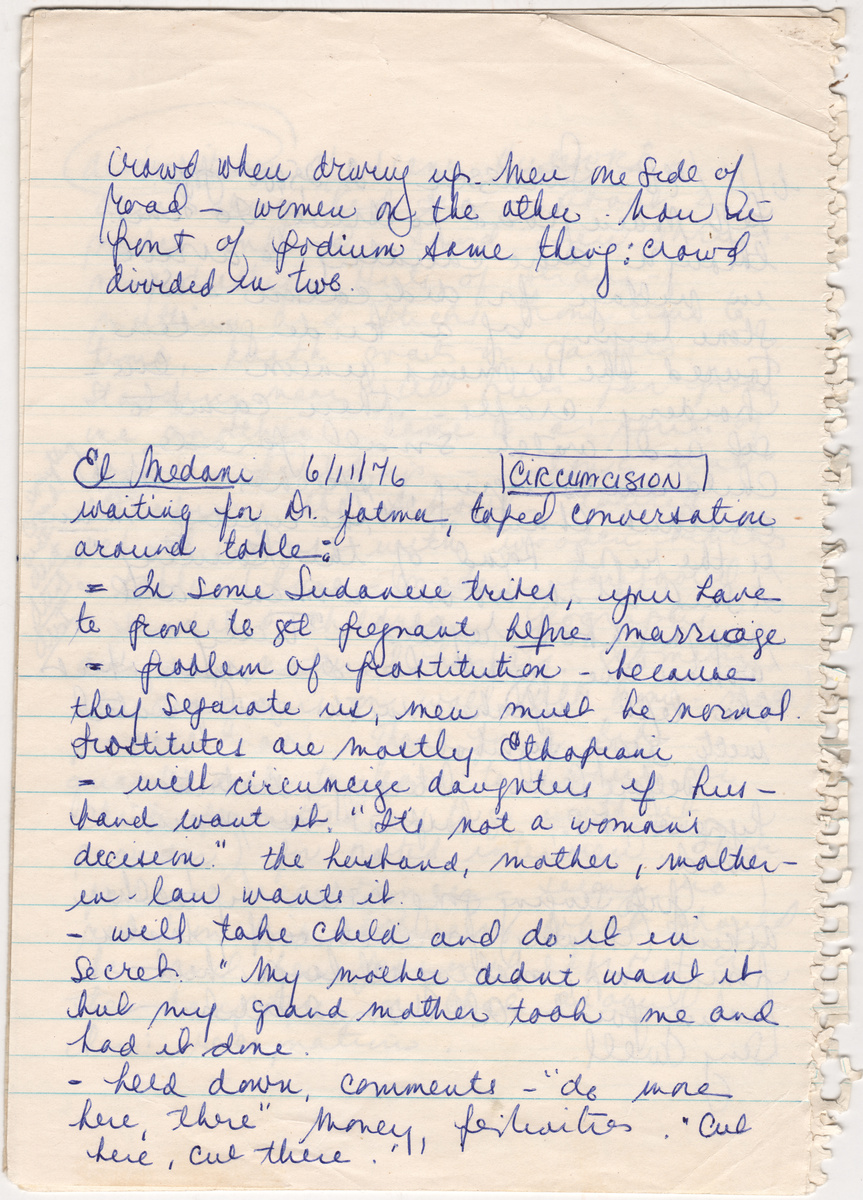 crowd when driving up. Men one side of
road – women on the other. Now in
front of podium same thing: crowd
divided in two.
El Medani 6/11/76 CIRCUMCISION
waiting for Dr. Fatma, taped conversation
around table:
= In some Sudanese tribes, you have
to prove to get pregnant before marriage
= problem of prostitution – because
they separate us, men must be normal.
Prostitutes are mostly Ethiopiani
= will circumcize daughters if hus-
band want it. "It's not a woman's
decision." the husband, mother, mother-
in-law wants it.
- will take child and do it in
secret. "My mother didn't want it
but my grand mother took me and
had it done.
- held down, comments – "do more
here, there" Money, festivities. "Cut
here, cut there."